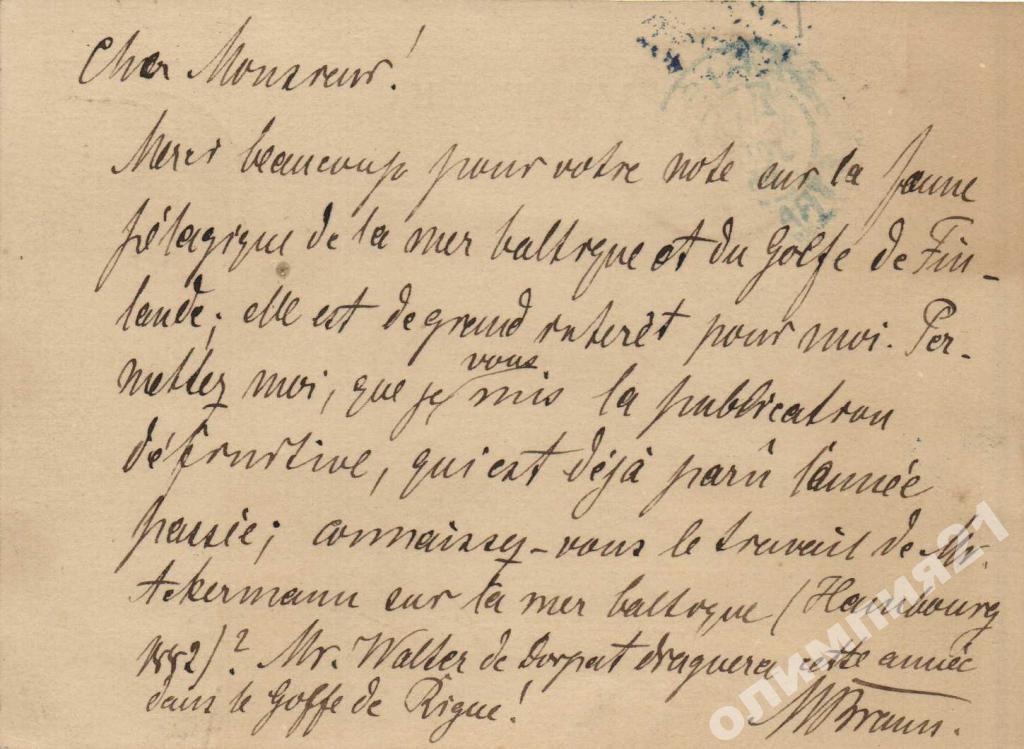 Cher Monsieur!
Merci beaucoup pour votre note sur la faune
pélagique de la mer baltique et du Golfe de Fin-
lande; elle est de grand interêt pour moi. Per-
mettez moi, que je vous
mis la publication
définitive, qui est déjà parû l'année
passée; connaissez-vous le travail de Mr.
Ackermann sur la mer baltique (Hambourg
1882)? Mr. Walter de Dorpat draguera cette année
dans le Golfe de Rigue! MBraun.
олимпия21